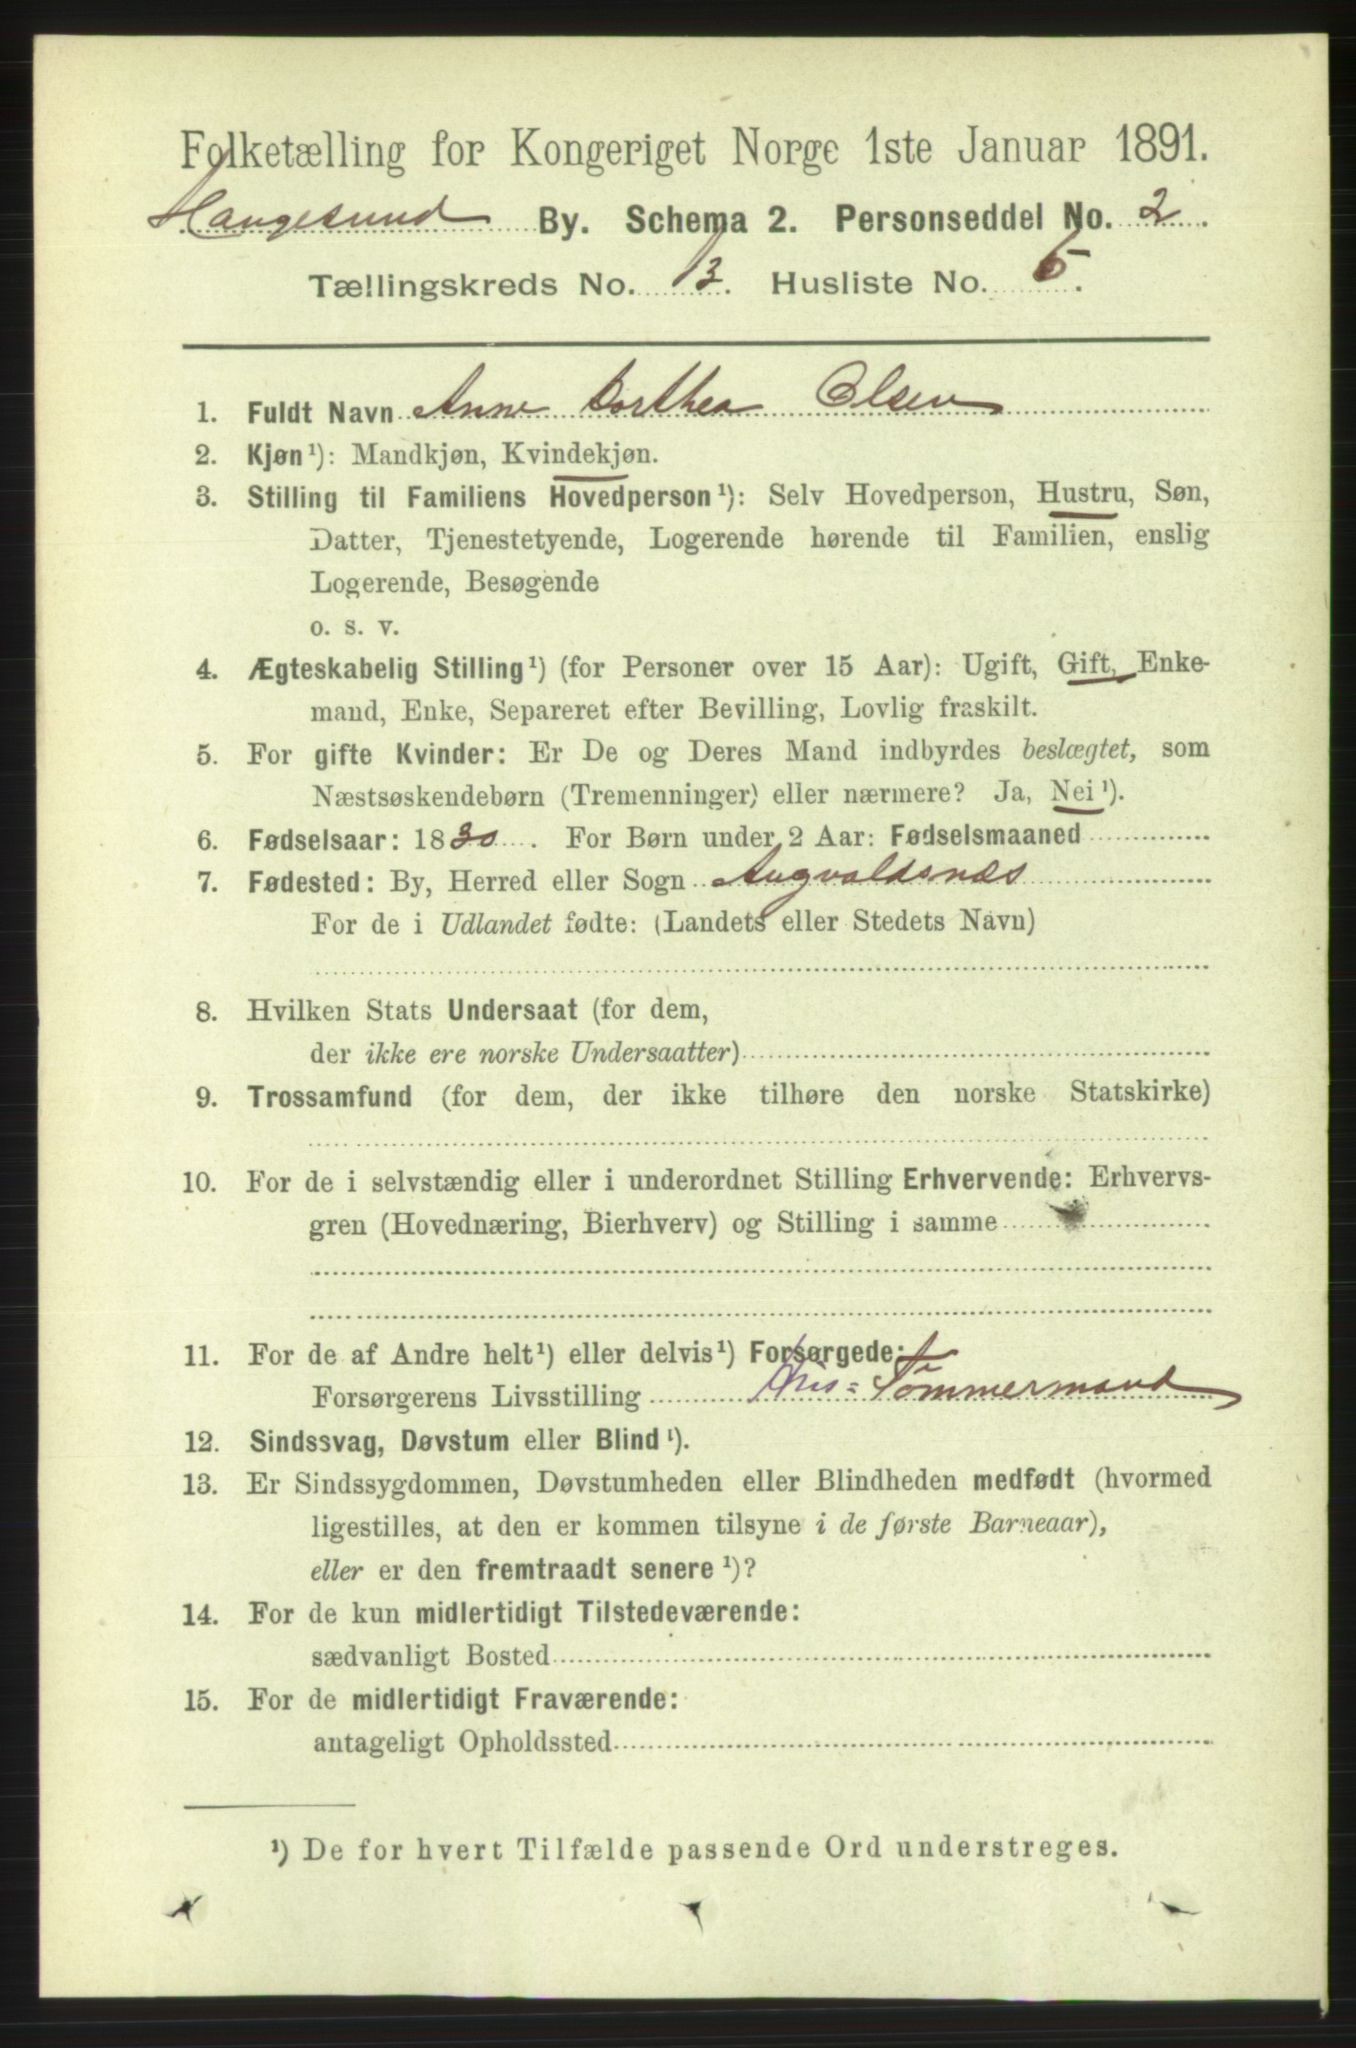 Folketælling for Kongeriget Norge 1ste Januar 1891.
Haugesund By. Schema 2. Personseddel No. 2.
Tællingskreds No. 13. Husliste No. 5.
1. Fuldt Navn Anne Dorthea Olsen
2. Kjøn¹): Mandkjøn, Kvindekjøn.
3. Stilling til Familiens Hovedperson¹): Selv Hovedperson, Hustru, Søn,
Datter, Tjenestetyende, Logerende hørende til Familien, enslig
Logerende, Besøgende
o. s. v.
4. Ægteskabelig Stilling¹) (for Personer over 15 Aar): Ugift, Gift, Enke-
mand, Enke, Separeret efter Bevilling, Lovlig fraskilt.
5. For gifte Kvinder: Er De og Deres Mand indbyrdes beslægtet, som
Næstsøskendebørn (Tremenninger) eller nærmere? Ja, Nei¹).
6. Fødselsaar: 1830. For Børn under 2 Aar: Fødselsmaaned
7. Fødested: By, Herred eller Sogn Augvaldsnæs
For de i Udlandet fødte: (Landets eller Stedets Navn)
8. Hvilken Stats Undersaat (for dem,
der ikke ere norske Undersaatter)
9. Trossamfund (for dem, der ikke tilhøre den norske Statskirke)
10. For de i selvstændig eller i underordnet Stilling Erhvervende: Erhvervs-
gren (Hovednæring, Bierhverv) og Stilling i samme
11. For de af Andre helt¹) eller delvis¹) Forsørgede:
Forsørgerens Livsstilling Hus=Tömmermand
12. Sindssvag, Døvstum eller Blind¹).
13. Er Sindssygdommen, Døvstumheden eller Blindheden medfødt (hvormed
ligestilles, at den er kommen tilsyne i de første Barneaar),
eller er den fremtraadt senere¹)?
14. For de kun midlertidigt Tilstedeværende:
sædvanligt Bosted
15. For de midlertidigt Fraværende:
antageligt Opholdssted
¹) De for hvert Tilfælde passende Ord understreges.